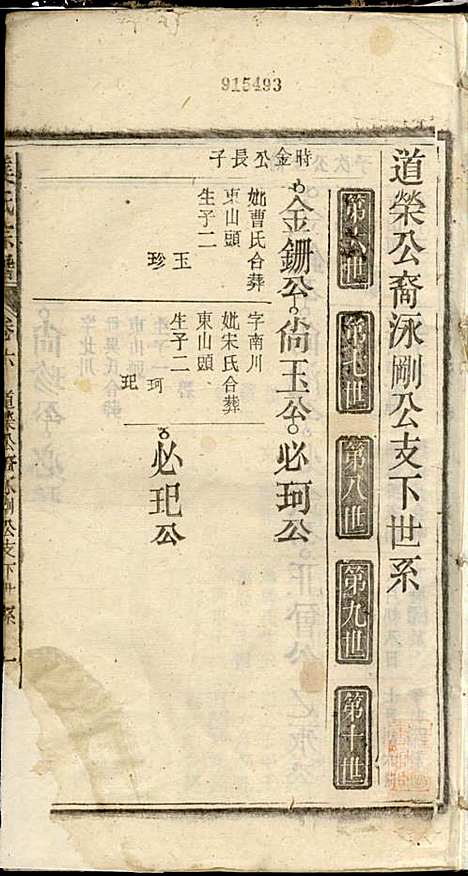 915493
道榮公裔泳剛公支下世系
第六世
第七世
第八世
第九世
第十世
時金公長子
金鉶公
尙玉公
必珂公
妣曹氏合葬
東山頭
生子二
玉
珍
字南川
妣宋氏合葬
東山頭
生子二
珂
玘
必玘公
氏宗譜
卷六
道榮公裔泳剛公支下世系
一